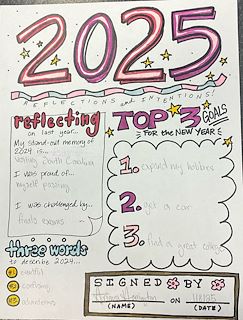 2025
REFLECTIONS and INTENTIONS!
reflecting
on last year...
My stand-out memory of
2024 is...
visiting South Carolina
I was proud of...
myself passing
I was challenged by...
finals exams
three words
to describe 2024...
#1
#2 confusing
#3
TOP 3
GOALS
FOR the NEW YEAR
1. expand my hobbies
2. get a car
3. find a great college
SIGNED BY
ON
(NAME) (DATE)